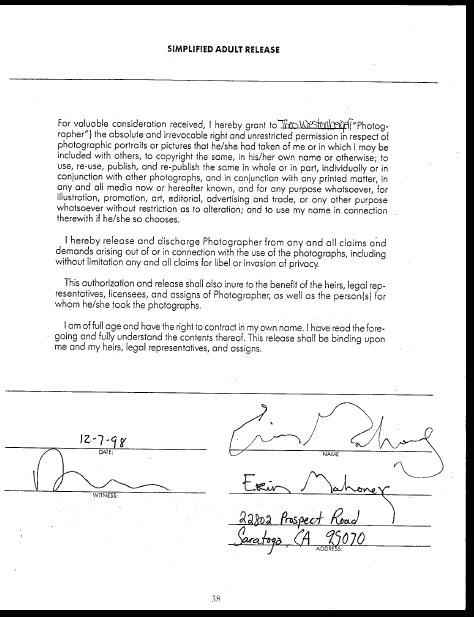 SIMPLIFIED ADULT RELEASE
For valuable consideration received, I hereby grant to Theo Westenberger ("Photog-
rapher") the absolute and irrevocable right and unrestricted permission in respect of
photographic portraits or pictures that he/she had taken of me or in which I may be
included with others, to copyright the same, in his/her own name or otherwise; to
use, re-use, publish, and re-publish the same in whole or in part, individually or in
conjunction with other photographs, and in conjunction with any printed matter, in
any and all media now or hereafter known, and for any purpose whatsoever, for
illustration, promotion, art, editorial, advertising and trade, or any other purpose
whatsoever without restriction as to alteration; and to use my name in connection
therewith if he/she so chooses.
I hereby release and discharge Photographer from any and all claims and
demands arising out of or in connection with the use of the photographs, including
without limitation any and all claims for libel or invasion of privacy.
This authorization and release shall also inure to the benefit of the heirs, legal rep-
resentatives, licensees, and assigns of Photographer, as well as the person(s) for
whom he/she took the photographs.
I am of full age and have the right to contract in my own name. I have read the fore-
going and fully understand the contents thereof. This release shall be binding upon
me and my heirs, legal representatives, and assigns.
12-7-98
DATE:
Erin Mahoney
NAME
WITNESS:
Erin Mahoney
22802 Prospect Road
Saratoga, CA 95070
ADDRESS:
38